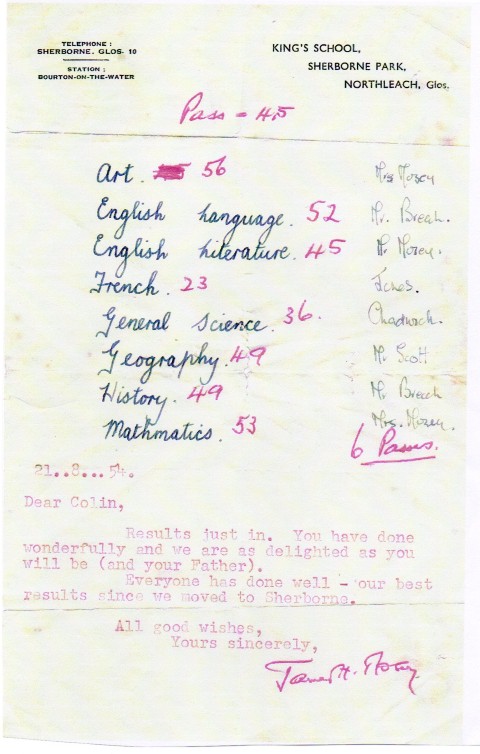 TELEPHONE :
SHERBORNE, GLOS. 10
STATION :
BOURTON-ON-THE-WATER
KING'S SCHOOL,
SHERBORNE PARK,
NORTHLEACH, Glos.
Pass - 45
Art. 56 Mrs Mosey
English Language. 52 Mr. Breach.
English Literature. 45 Mr Mosey.
French. 23 Jones.
General Science. 36. Chadwick.
Geography. 49 Mr Scott
History. 49 Mr Breach
Mathmatics. 53 Mrs. Mosey.
6 Passes.
21..8...54.
Dear Colin,
Results just in. You have done
wonderfully and we are as delighted as you
will be (and your Father).
Everyone has done well - our best
results since we moved to Sherborne.
All good wishes,
Yours sincerely,
James H. Mosey.